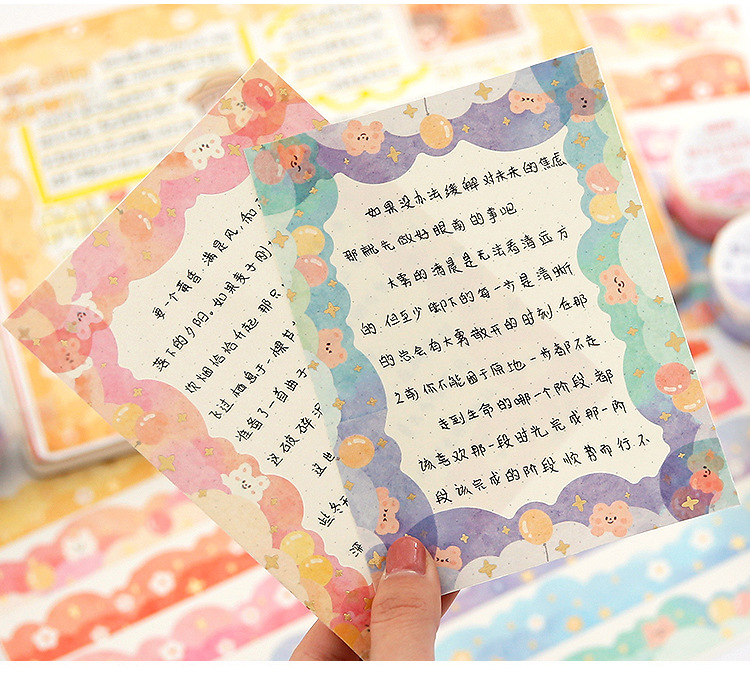 要一个黄昏 满是风,和
落下的夕阳。如果麦子刚
炊烟恰恰升起 那只
飞过 栖息于一棵
准备了一首曲子
这破碎
这世
些冬天
如果没办法缓解对未来的焦虑
那就先做好眼前的事吧
大雾的清晨是无法看清远方
的 但至少脚下的每一步是清晰
的 总会有大雾散开的时刻 在那
之前 你不能困于原地 一步都不走
走到生命的哪一个阶段 都
该喜欢那一段时光 完成那一阶
段该完成的阶段 顺势而行 不